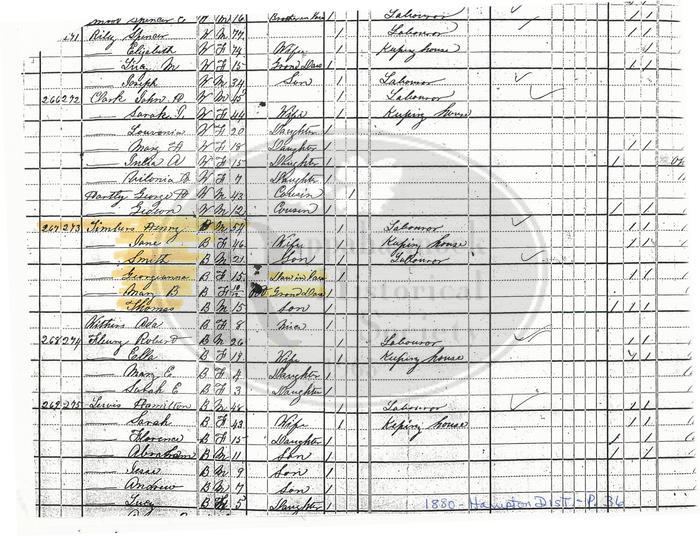 Spencer C W M 16 Brother in Law 1 Labouror
271 Riley Spencer W M 77 / Labouror
— Elizabeth W F 74 Wife 1 Keeping house
— Lucy M W F 15 Grand Dau 1
— Joseph W M 34 Son 1 Labouror
266 272 Clark John W M 45 / Labouror
— Sarah W F 44 Wife 1 Keeping house
— Louvenia W F 20 Daughter 1
— Mary W F 18 Daughter 1
— A W F 15 Daughter 1
— W F 7 Daughter 1
George W M 43 Cousin 1
— Gideon W M 12 Cousin 1
267 273 Timbers Henry B M 57 / Labouror
— Jane B F 46 Wife 1 Keeping house
— Smith B M 21 Son 1 Labouror
— Georgianna B F 15 Dau in Law 1
— Mary B B F Grand Dau 1
— Thomas B M 15 Son 1
Ada B F 8 Niece 1
268 274 Fleury Robert B M 26 / Labouror
— Ella B F 19 Wife 1 Keeping house
— Mary E B F 4 Daughter 1
— Sarah E B F 3 Daughter 1
269 275 Lewis Hamilton B M 48 / Labouror
— Sarah B F 43 Wife 1 Keeping house
— Florence B F 15 Daughter 1
— Abraham B M 11 Son 1
— Isaac B M 9 Son 1
— Andrew B M 7 Son 1
— Lucy B F 5 Daughter 1
1880 - Hampton Dist. - P. 36
Rappahannock
Historical
Society